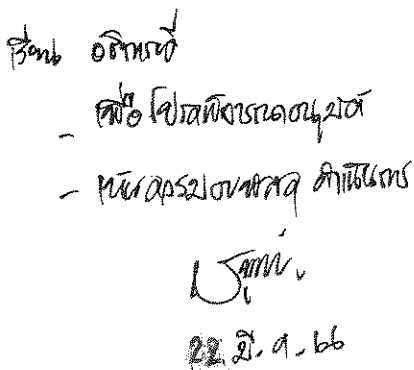 เรียน อธิการบดี
- เพื่อโปรดพิจารณาอนุมัติ
- เห็นควรมอบพัสดุ ดำเนินการ
22 มี.ค. 66